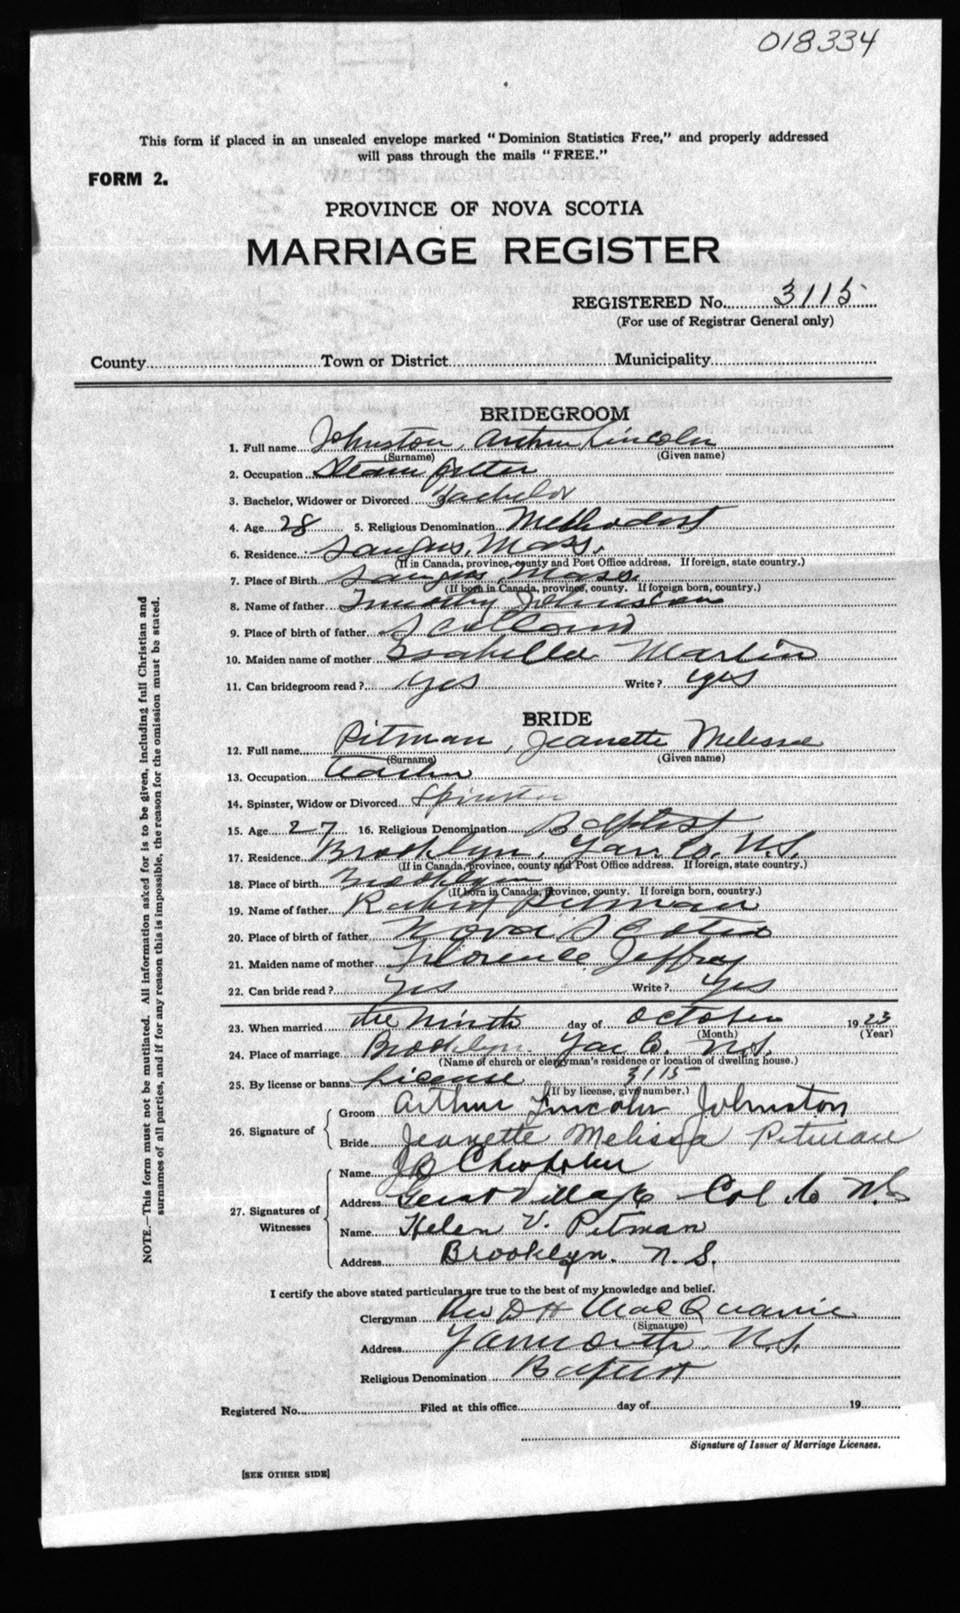 018334
This form if placed in an unsealed envelope marked "Dominion Statistics Free," and properly addressed
will pass through the mails "FREE."
FORM 2.
PROVINCE OF NOVA SCOTIA
MARRIAGE REGISTER
REGISTERED No. 3115
(For use of Registrar General only)
County Town or District Municipality
BRIDEGROOM
1. Full name Johnston, Arthur Lincoln
(Surname) (Given name)
2. Occupation Steam fitter
3. Bachelor, Widower or Divorced Bachelor
4. Age 28 5. Religious Denomination Methodist
6. Residence Saugus, Mass.
(If in Canada, province, county and Post Office address. If foreign, state country.)
7. Place of Birth Saugus, Mass.
(If born in Canada, province, county. If foreign born, country.)
8. Name of father Timothy Johnston
9. Place of birth of father Scotland
10. Maiden name of mother Isabella Martin
11. Can bridegroom read? yes Write? yes
BRIDE
12. Full name Pitman, Jeanette Melissa
(Surname) (Given name)
13. Occupation teacher
14. Spinster, Widow or Divorced Spinster
15. Age 27 16. Religious Denomination Baptist
17. Residence Brooklyn, Yar. Co. N.S.
(If in Canada, province, county and Post Office address. If foreign, state country.)
18. Place of birth Brooklyn
(If born in Canada, province, county. If foreign born, country.)
19. Name of father Robert Pitman
20. Place of birth of father Nova Scotia
21. Maiden name of mother Florence Jeffrey
22. Can bride read? Yes Write? Yes
23. When married the Ninth day of October 1923
(Month) (Year)
24. Place of marriage Brooklyn Yar Co. N.S.
(Name of church or clergyman's residence or location of dwelling house.)
25. By license or banns License 3115
(If by license, give number.)
26. Signature of
Groom Arthur Lincoln Johnston
Bride Jeanette Melissa Pitman
27. Signatures of Witnesses
Name J B Chisholm
Address Great Village Col. Co N.S
Name Helen V. Pitman
Address Brooklyn. N.S.
I certify the above stated particulars are true to the best of my knowledge and belief.
Clergyman Rev D H MacQuarrie
(Signature)
Address Yarmouth N.S.
Religious Denomination Baptist
Registered No. Filed at this office day of 19
Signature of Issuer of Marriage Licenses.
[SEE OTHER SIDE]
NOTE.—This form must not be mutilated. All information asked for is to be given, including full Christian and
surnames of all parties, and if for any reason this is impossible, the reason for the omission must be stated.